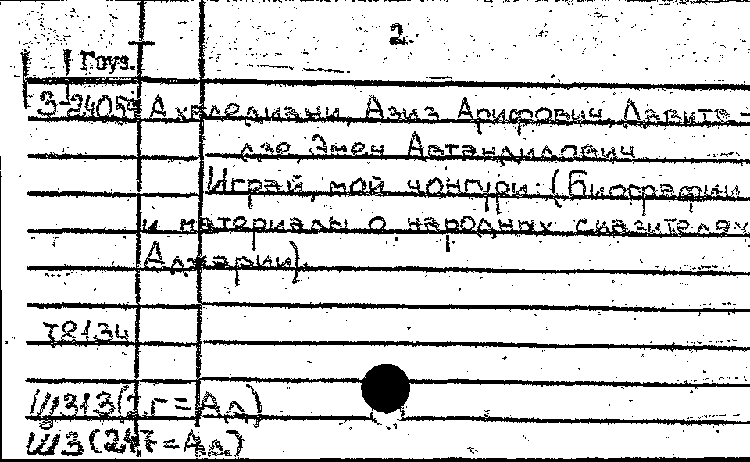 2.
Гоуз.
3-24059 Ахвледиани, Азиз Арифович, Давита-
дзе, Эмен Автандилович
Играй, мой чонгури: (Биографии
и материалы о народных сказителях
Аджарии).
т8134
Ш313(2.г=Ад)